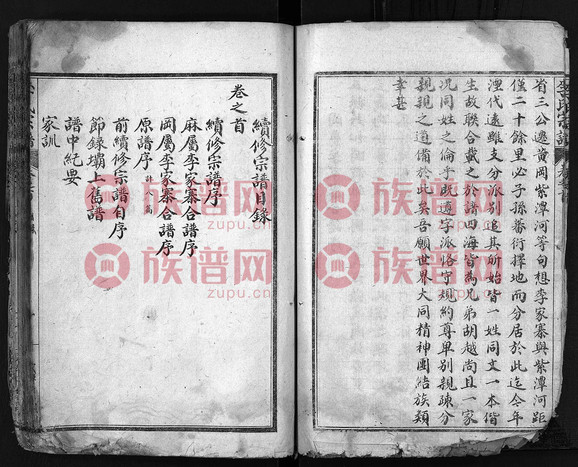 李氏宗譜
卷之首
省三公遷黄岡紫潭河等句想李家寨與紫潭河距
僅二十餘里必子孫蕃衍擇地而分居於此迄今年
湮代遠雖支分派別追其所始皆一姓同文一本偕
生故聯合載之於譜四海皆為兄弟胡越尚且一家
况同姓之倫乎敢遵字派恪守規約尊卑別親疎分
親親之道備於此矣吾願世界大同精神團結族類
幸甚
續修宗譜目錄
卷之首
續修宗譜序
麻屬李家寨合譜序
岡屬李家寨合譜序
原譜序
前續修宗譜自序
節録壩上舊譜
譜中紀要
家訓
族谱网
zupu.cn
族谱网
zupu.cn
族谱网
zupu.cn
族谱网
zupu.cn